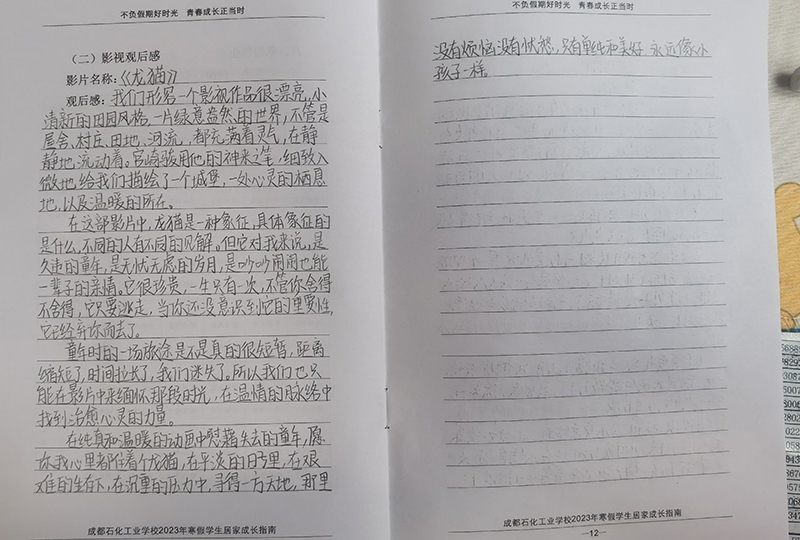 不负假期好时光 青春成长正当时
（二）影视观后感
影片名称:《龙猫》
观后感: 我们形容一个影视作品很漂亮,小
清新的田园风格,一片绿意盎然的世界,不管是
屋舍、村庄、田地、河流,都充满着灵气,在静
静地流动着。宫崎骏用他的神来之笔,细致入
微地给我们描绘了一个城堡,一处心灵的栖息
地,以及温暖的所在。
在这部影片中,龙猫是一种象征,具体象征的
是什么,不同的人有不同的见解。但它对我来说,是
久违的童年,是无忧无虑的岁月,是吵吵闹闹也能
一辈子的亲情。它很珍贵,一生只有一次,不管你舍得
不舍得,它只要逃走,当你还没意识到它的重要性,
它已经弃你而去了。
童年时的一场旅途是不是真的很短暂,距离
缩短了,时间拉长了,我们迷失了。所以我们也只
能在影片中来缅怀那段时光,在温情的脉络中
找到治愈心灵的力量。
在纯真和温暖的动画中慰藉失去的童年,愿
你我心里都住着个龙猫,在平淡的日子里,在艰
难的生存下,在沉重的压力中,寻得一方天地,那里
成都石化工业学校2023年寒假学生居家成长指南
不负假期好时光 青春成长正当时
没有烦恼没有忧愁,只有单纯和美好,永远像小
孩子一样。
成都石化工业学校2023年寒假学生居家成长指南
—12—